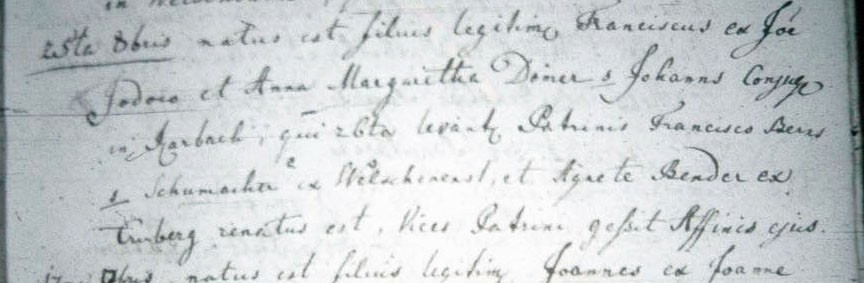 in
25ta 8bris natus est filius legitimq Franciscus ex Joe
Jodoco et Anna Margaretha Dömer s Johanns Conjug
in Marbach, qui 26ta levantq Patrinis Francisco Berns
s Schumacher ex Welschenenst, et Agnete Bender ex
renatus est, Vices Patrini gessit Affinis ejus.
8bris natus est filius legitimq Joannes ex Joanne